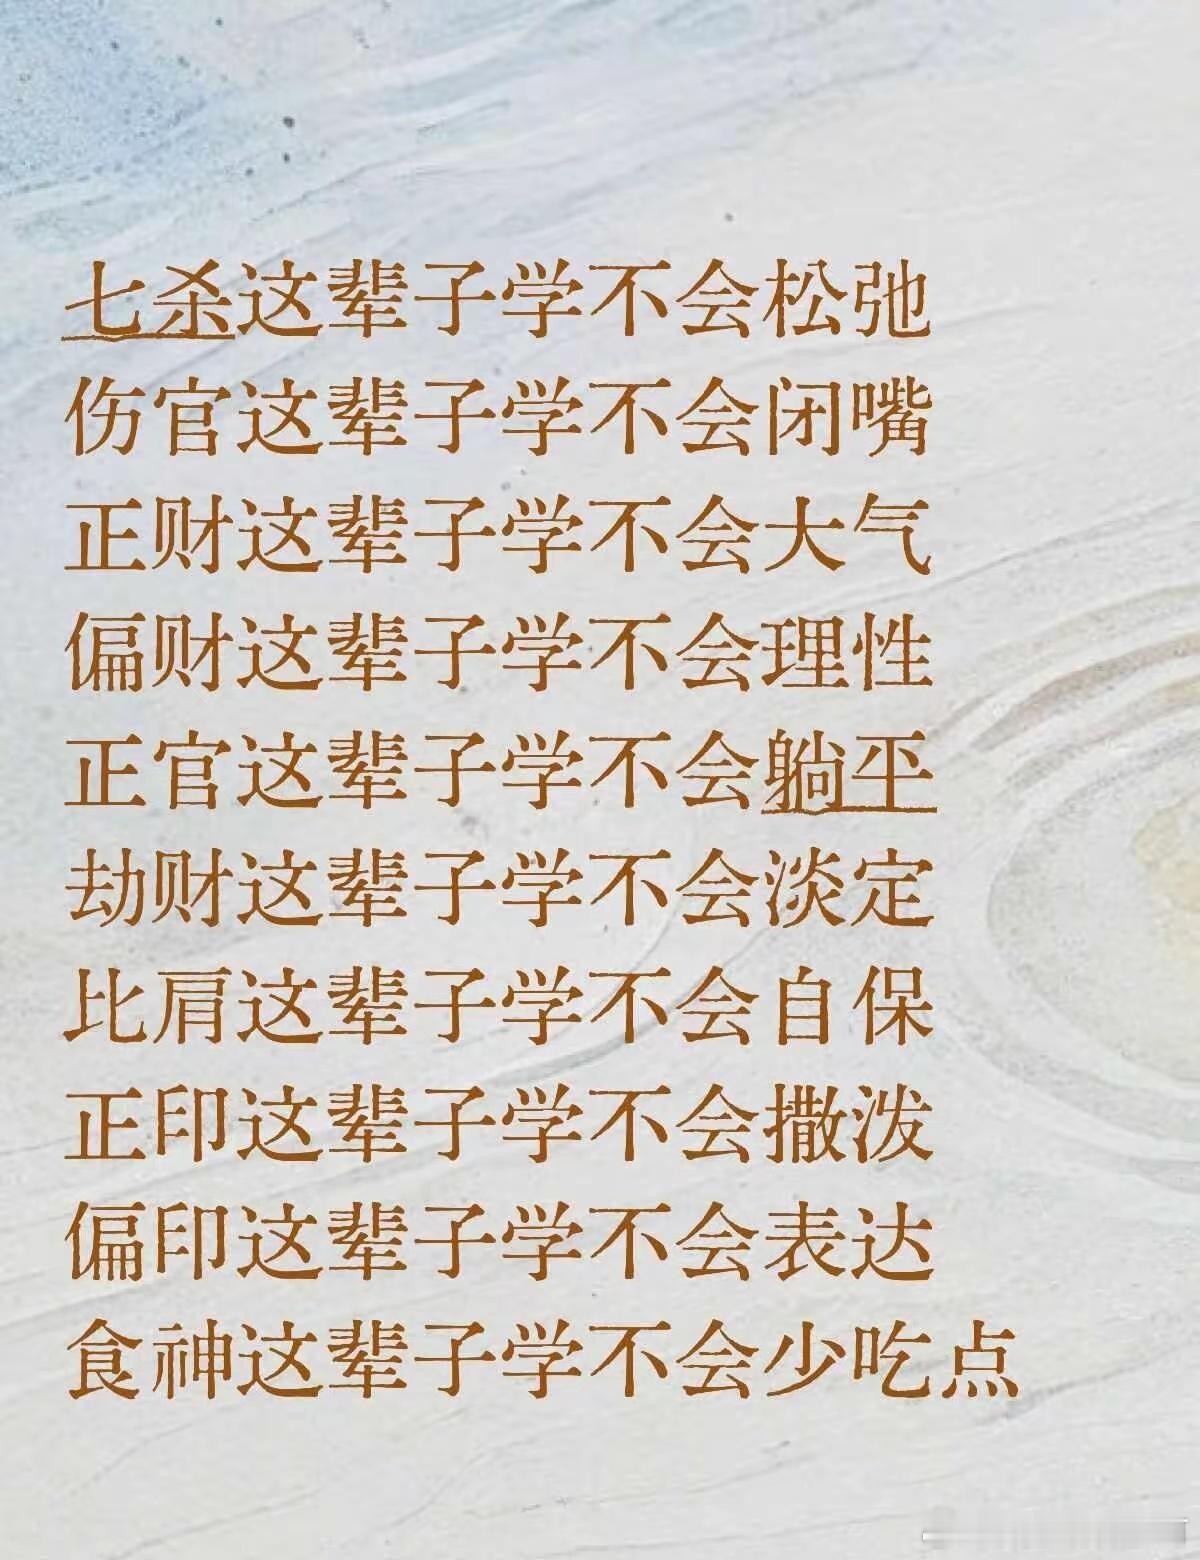 七杀这辈子学不会松弛
伤官这辈子学不会闭嘴
正财这辈子学不会大气
偏财这辈子学不会理性
正官这辈子学不会躺平
劫财这辈子学不会淡定
比肩这辈子学不会自保
正印这辈子学不会撒泼
偏印这辈子学不会表达
食神这辈子学不会少吃点